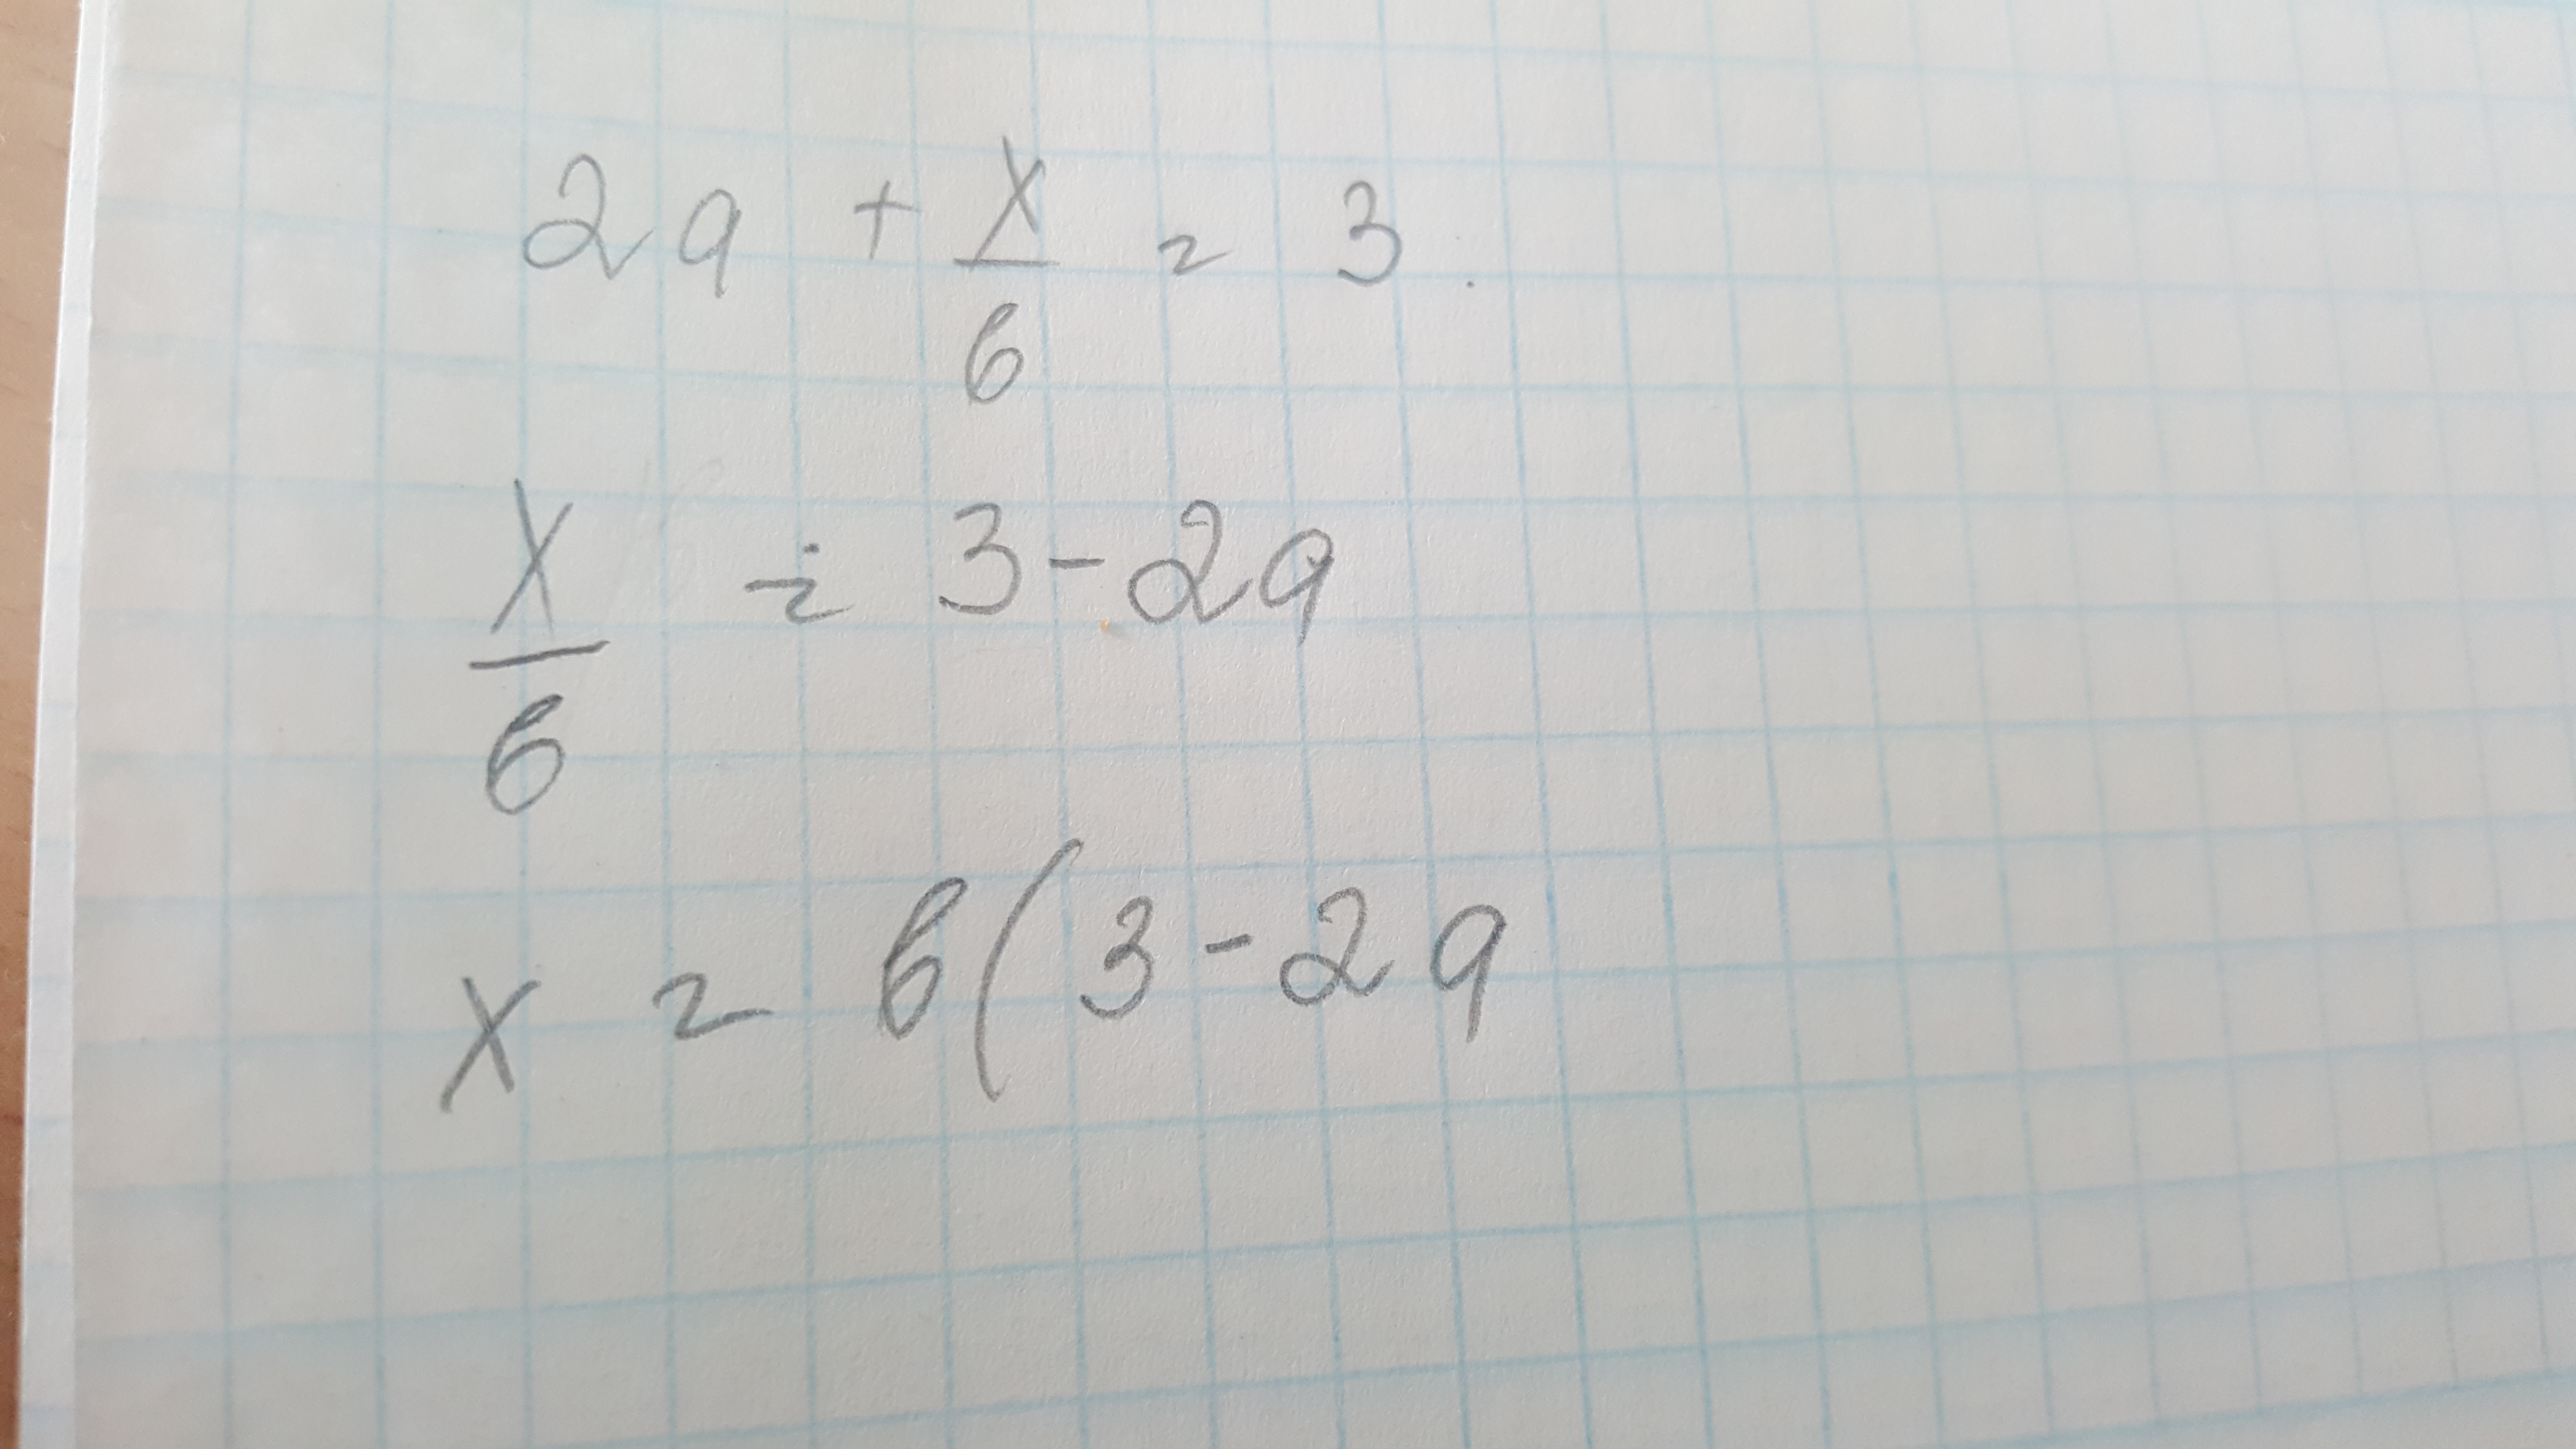 2a + x/6 = 3.
x/6 = 3 - 2a
x = 6(3 - 2a